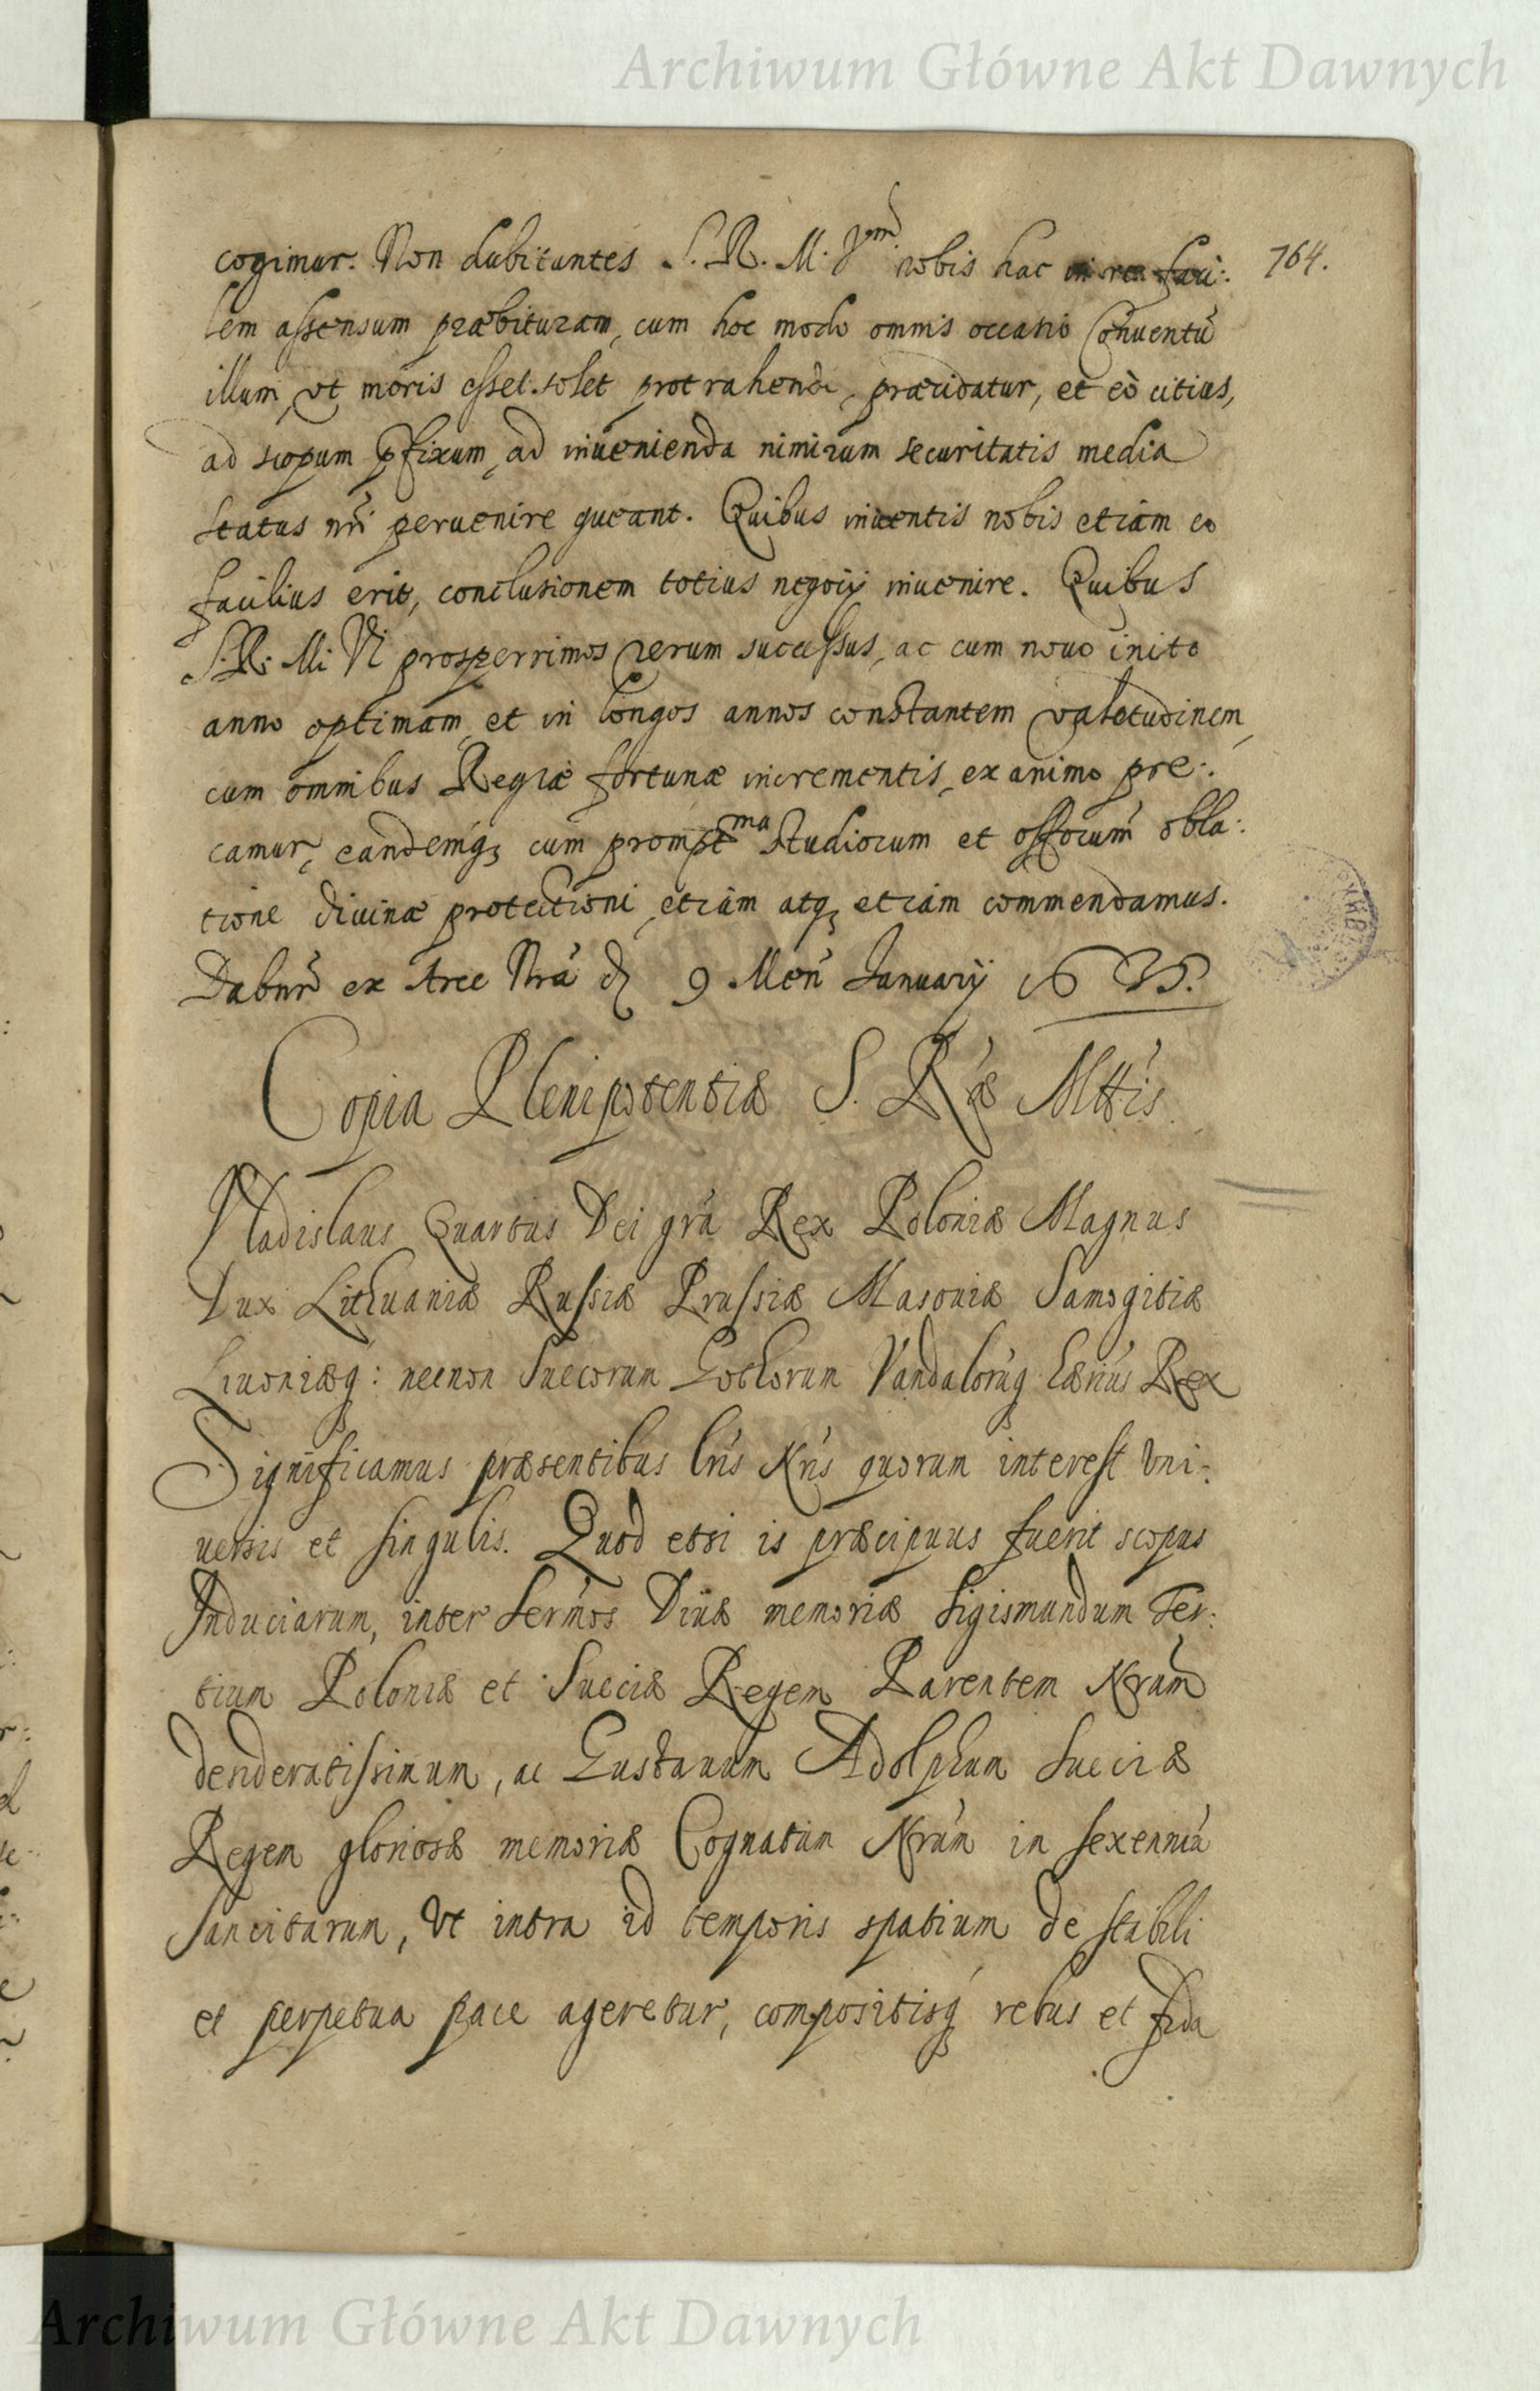 Archiwum Główne Akt Dawnych
764.
cogimur. Non dubitantes S. R. M. Vrm̃ nobis hac in re faci:
lem assensum præbituram, cum hoc modo omnis occasio Conuentũ
illum, vt moris esset solet protrahendi, præcidatur, et eò citius,
ad scopum p̱fixum, ad inuenienda nimirum securitatis media
status nr̃i peruenire queant. Quibus inuentis nobis etiam eo
facilius erit, conclusionem totius negoij inuenire. Quibus
S. R. M. Vr̃ prosperrimos rerum successus, ac cum nouo inito
anno optimam, et in longos annos constantem valetudinem,
cum omnibus Regiæ fortunæ incrementis, ex animo pre:
camur, eandemq; cum promptma studiorum et offorum̃ obla:
tione diuinæ protectioni, etiam atq; etiam commendamus.
Dabur̃ ex Arce Nrã d 9 Men̄ January 1635.
Copia Plenipotentiæ S. R'æ Mttis
Vladislaus Quartus Dei grã Rex Poloniæ Magnus
Dux Lithuaniæ Russiæ Prussiæ Masouiæ Samogitiæ
Liuoniæq: necnon Suecorum Gothorum Vandalorũq hærius Rex
Significamus præsentibus lrĩs Nrĩs quorum interest vni:
uersis et singulis. Quod etsi is præcipuus fuerit scopus
Induciarum, inter Sermos Diuæ memoriæ Sigismundum Ter:
tium Poloniæ et Sueciæ Regem Parentem Nrũm
desideratissimum, ac Gustauum Adolphum Sueciæ
Regem gloriosæ memoriæ Cognatum Nrũm in sexenniũ
sancitarum, vt intra id temporis spatium de stabili
et perpetua pace ageretur, compositisq́ rebus et fida
Archiwum Główne Akt Dawnych